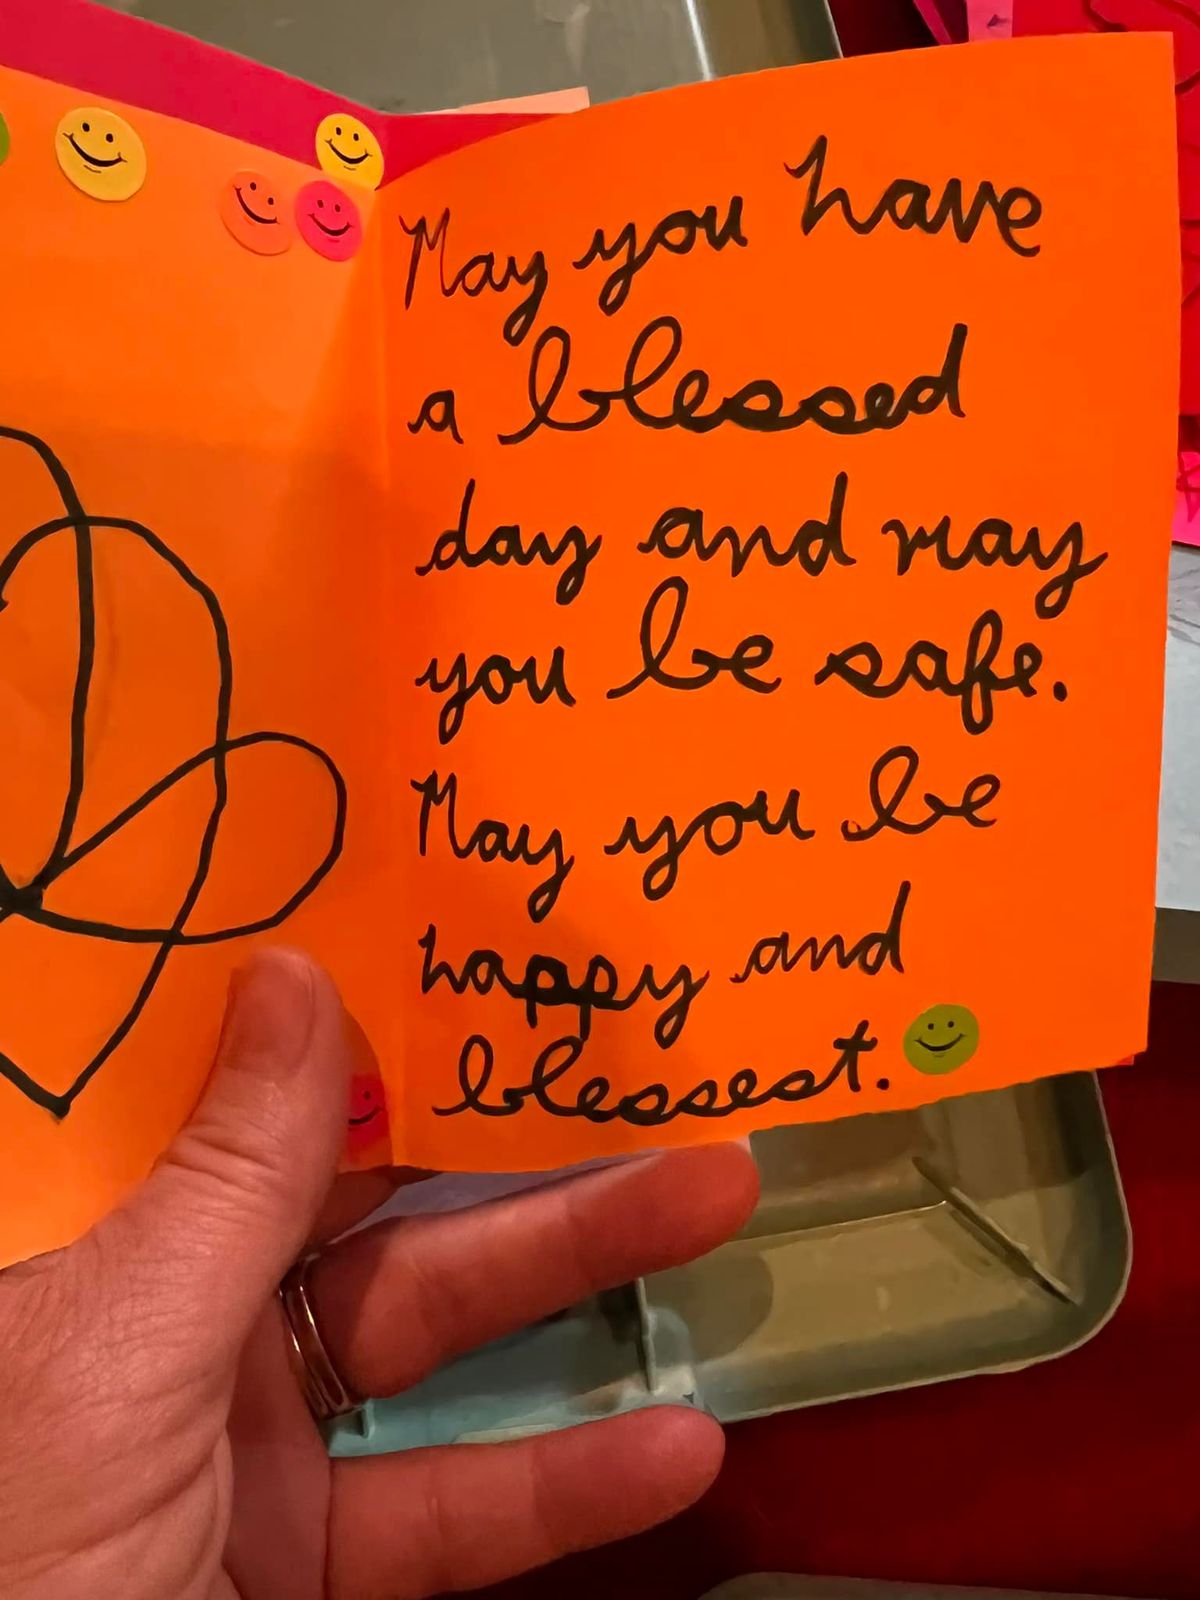 May you have
a blessed
day and may
you be safe.
May you be
happy and
blessest.